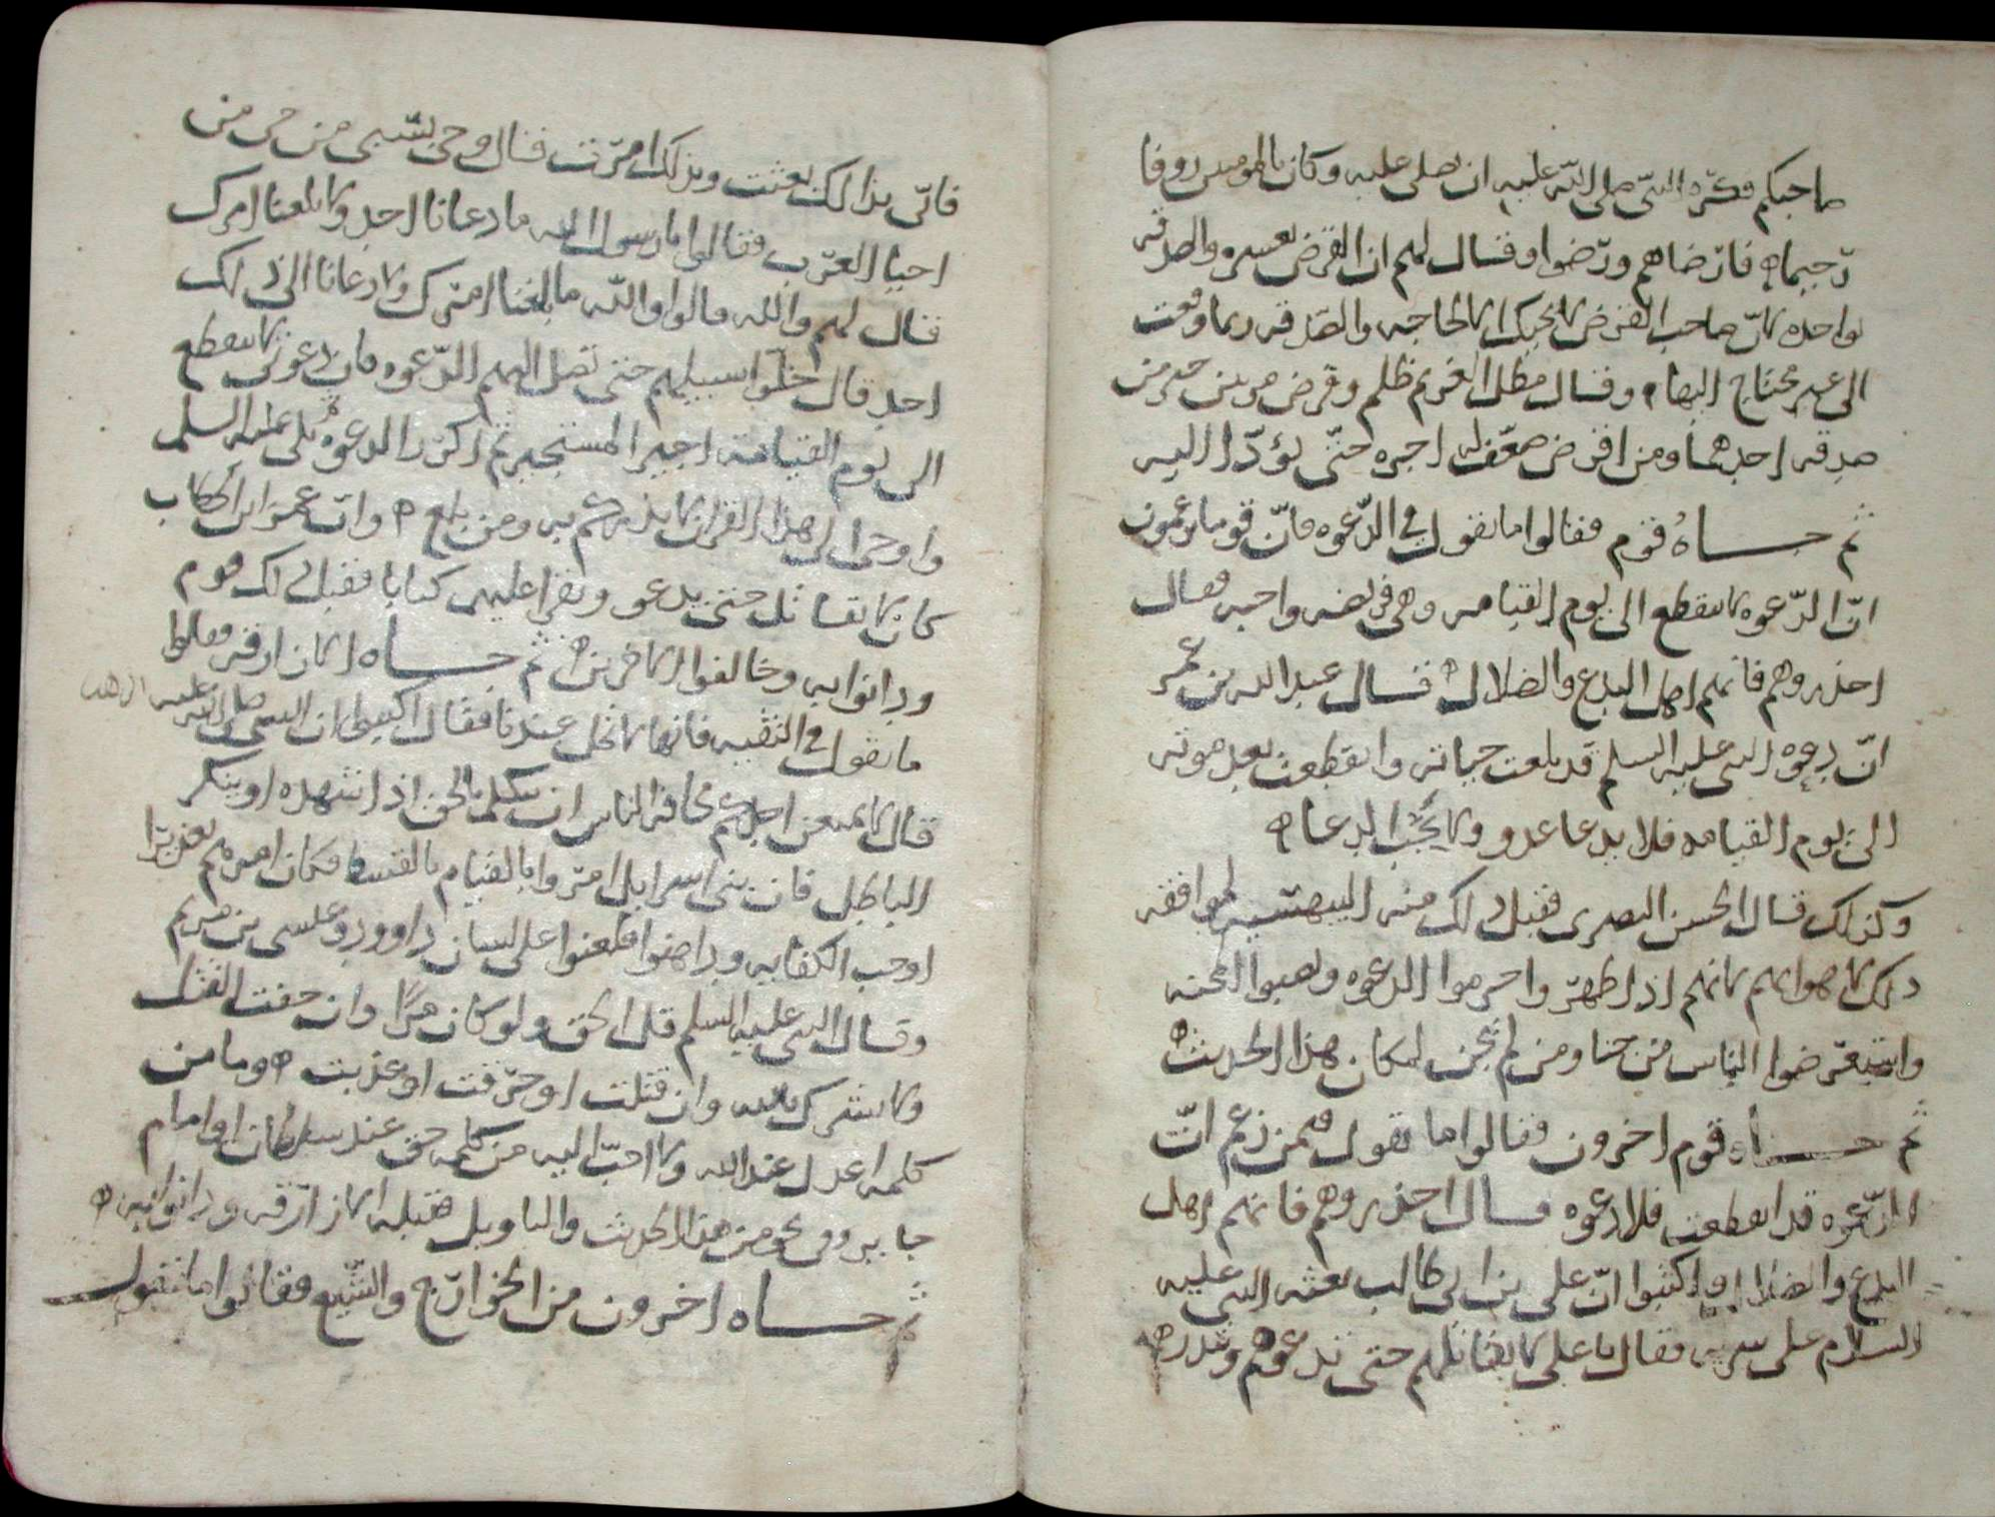 صاحبكم فكره النبي صلى الله عليه ان يصلي عليه وكان بالمومنين روفا
رحيما ه فارضاهم ورضوا وقال لهم ان القرض بعشره والصدقه
بواحده لان صاحب القرض لا يجيك الا لحاجه والصدقه ربما وقعت
الى غير محتاج اليها ه وقال مطل الغريم ظلم وقرض مرتين خير من
صدقه احدهما ومن اقرض ضعف له اجره حتى يؤدا اليه
ثم جاه قوم فقالوا ما تقول في الدعوه فان قوما يزعمون
ان الدعوه لا تنقطع الى يوم القيامه وهي فريضه واجبه فقال
احذروهم فانهم اهل البدع والضلال ه فقال عبد الله بن عمر
ان دعوه النبي عليه السلم قد بلغت حياته وانقطعت بعد موته
الى يوم القيامه فلا يدعا عدو ولا يجب الدعا ه
وكذلك قال الحسن البصري فقبل ذلك منه البيهسيه لموافقه
ذلك لاهوايهم لانهم اذا ظهروا حرموا الدعوه ونصبوا المحنه
واستعرضوا الناس من جنا ومن لم يجن لمكان هذا الحديث ه
ثم جاه قوم اخرون فقالوا ما تقول فيمن زعم ان
الدعوه قد انقطعت فلا دعوه فقال احذروهم فانهم اهل
البدع والضلال واكتبوا ان علي بن ابي طالب بعثه النبي عليه
السلام على سريه فقال يا علي لا تقاتلهم حتى تدعوهم وتنذرهم
فاني بذالك بعثت وبذلك امرت فقال وجي بسبي من حي من
احيا العرب فقالوا يا رسول الله ما دعانا احد ولا بلغنا امرك
فقال لهم والله قالوا والله ما بلغنا امرك ولا دعانا الى ذلك
احد قال خلوا سبيلهم حتى تصل اليهم الدعوه فان دعوتي لا تنقطع
الى يوم القيامه اجير المستجير ثم اكرر الدعوه تلى عليه السلم
واوحي الي هذا القران لانذركم به ومن بلغ ه وان عمر ابن الخطاب
كان لا يقاتل حتى يدعو ويقرا عليهم كتابا فقبل ذلك قوم
ودانوا به وخالفوا الاخرين ه ثم جاه الازارقه فقالوا
ما تقول في التقيه فانها لا تحل عندنا فقال اكتبوا ان النبي صلى الله عليه
قال لا يمنعن احدكم مخافه الناس ان يتكلم بالحق اذا شهده او ينكر
الباطل فان بني اسرايل امروا بالقيام بالقسط فكان امرهم تعزيرا
اوجب الكفايه وداهنوا فلعنوا على لسان داوود وعيسى بن مريم
وقال النبي عليه السلم قل الحق ولو كان مرا وان خفت القتل
ولا تشرك بالله وان قتلت او حرقت او عذبت ه وما من
كلمه اعدل عند الله ولا احب اليه من كلمه حق عند سلطان او امام
جاير وفي نحو من هذا الحديث والتاويل فقبله الازارقه ودانوا به ه
ثم جاه اخرون من الخوارج والشيع فقالوا ما تقول